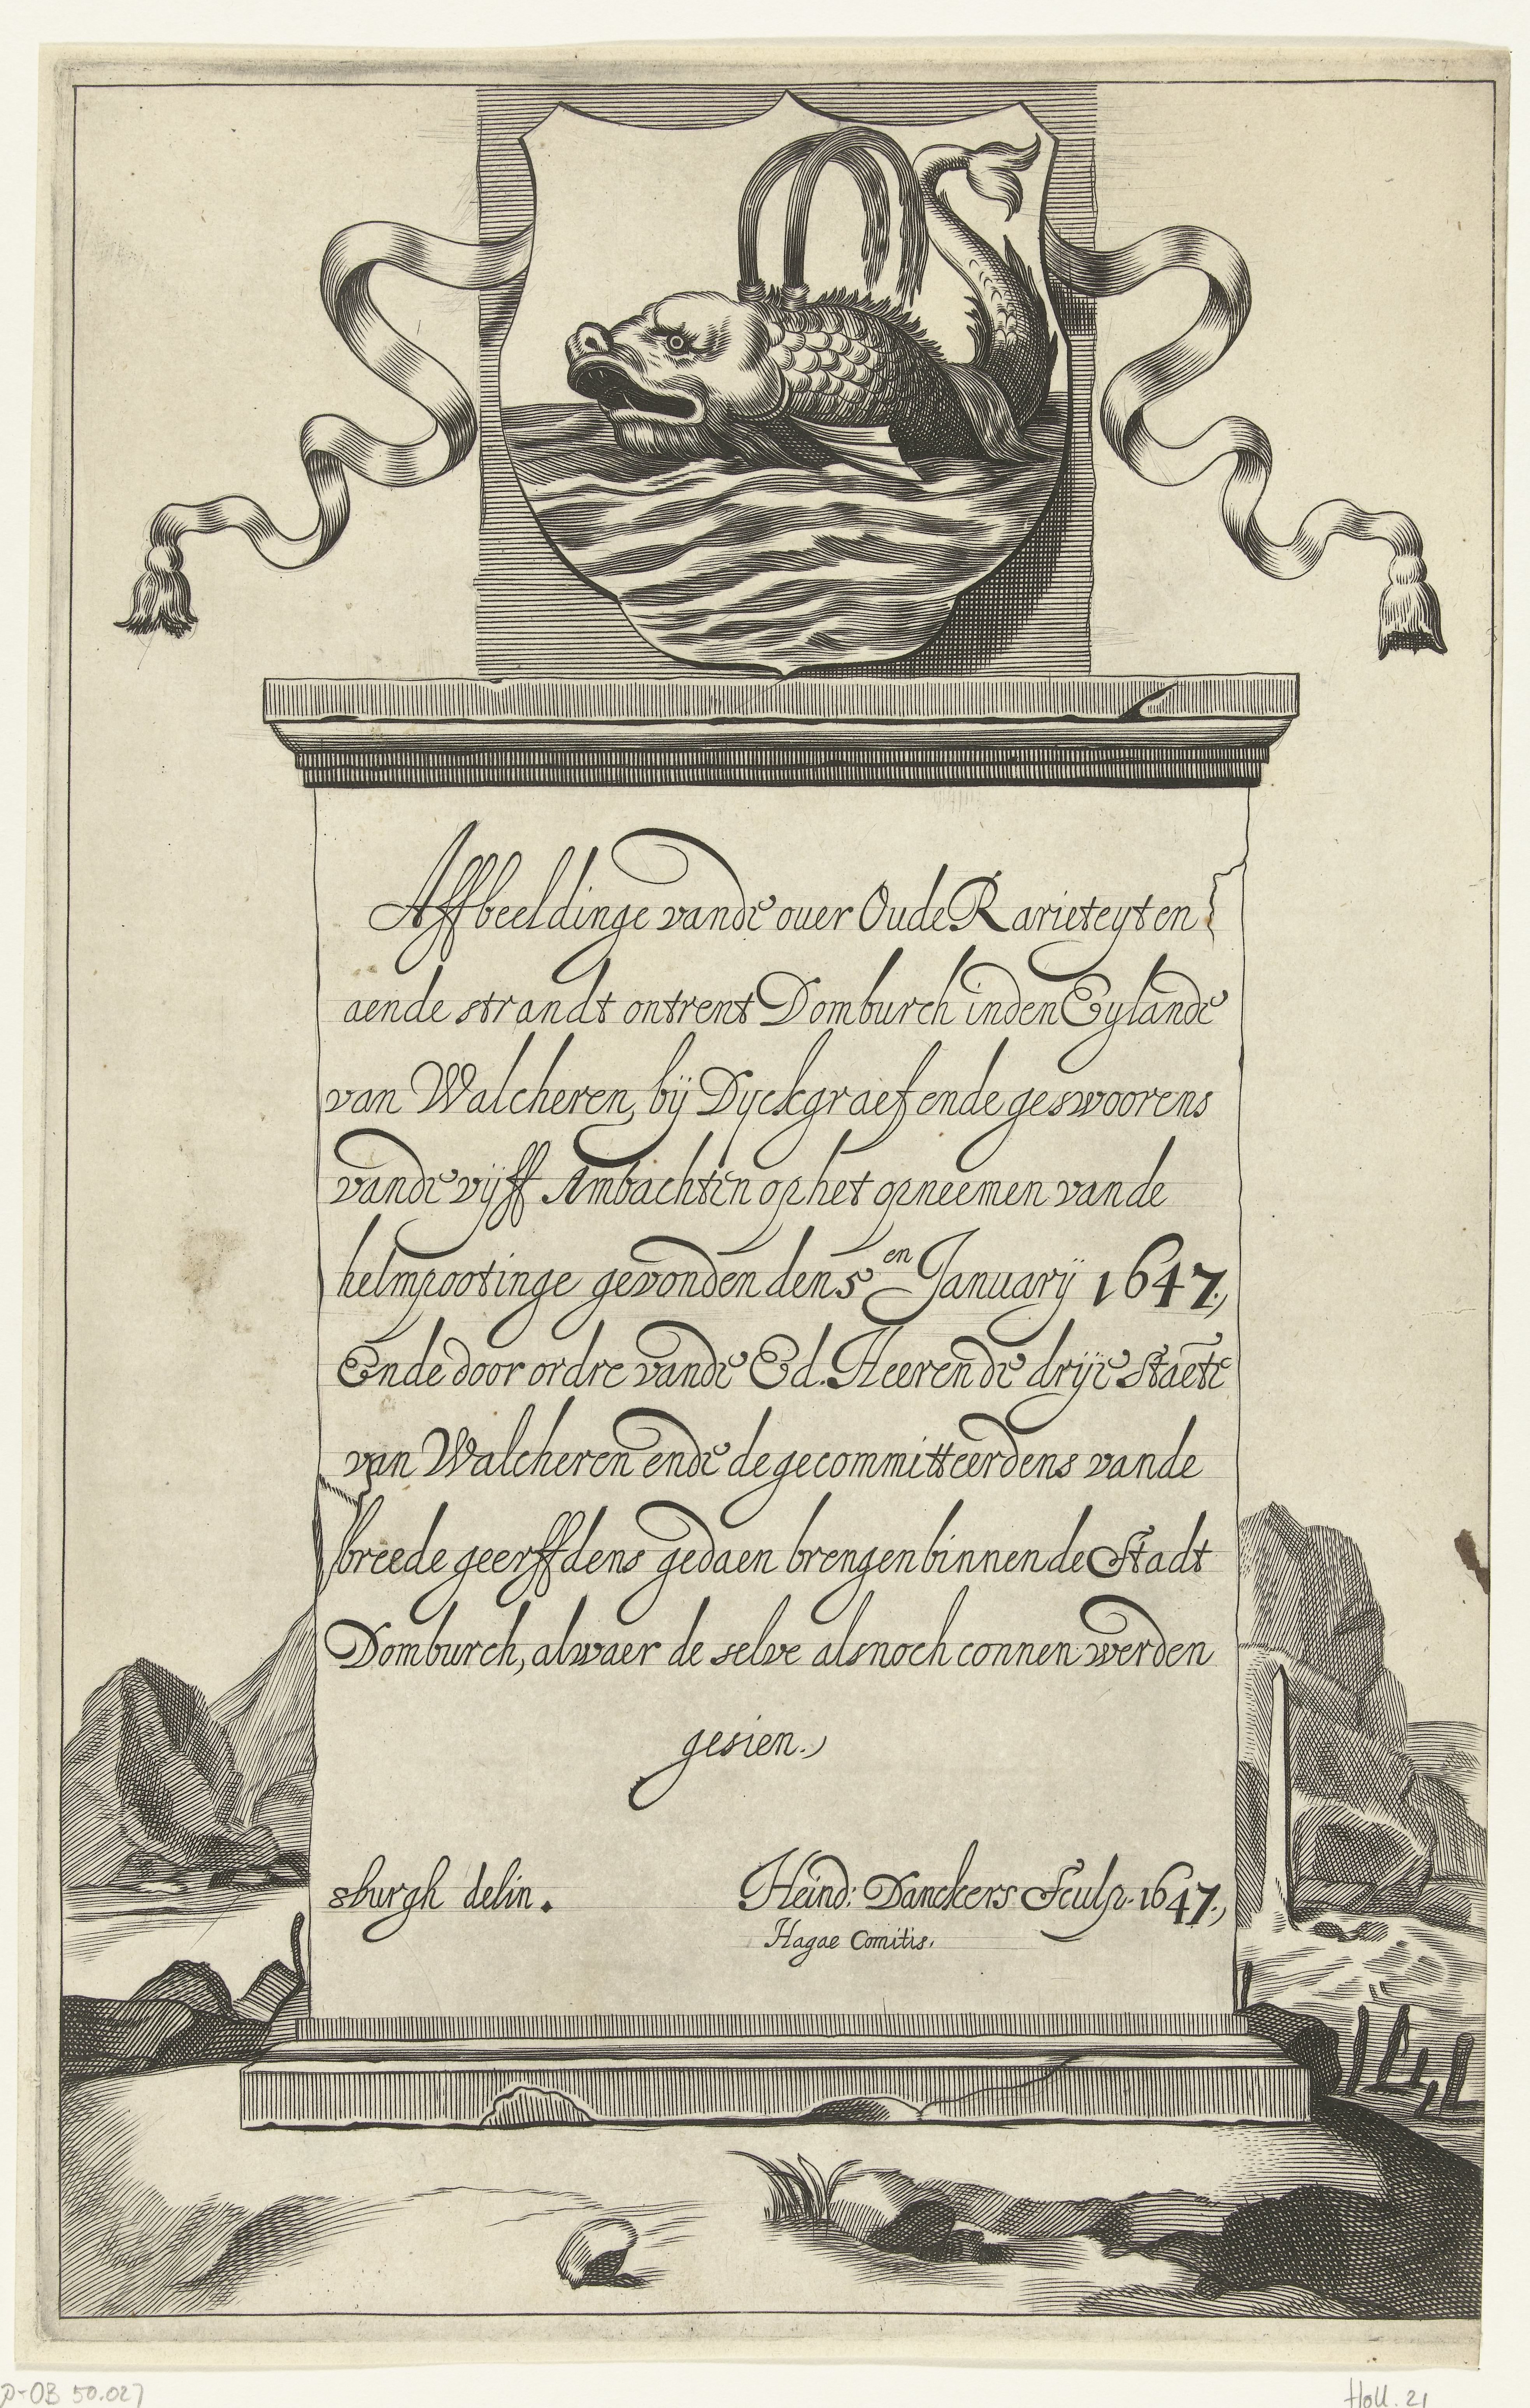 Affbeeldinge vande ouer Oude Rarieteyten
aende strandt ontrent Domburch inden Eylande
van Walcheren, bij Dyckgraef ende geswoorens
vande vijff Ambachten op het opneemen van de
helmpootinge gevonden den 5en January 1647.
Ende door ordre vande Ed. Heeren de drije Staete
van Walcheren ende de gecommitteerdens vande
breede geerffdens gedaen brengen binnen de Stadt
Domburch, alwaer de selve alsnoch connen werden
gesien.
sburgh delin.
Heind: Danckers Sculp. 1647.
Hagae Comitis.
P-OB 50.027
Holl. 21